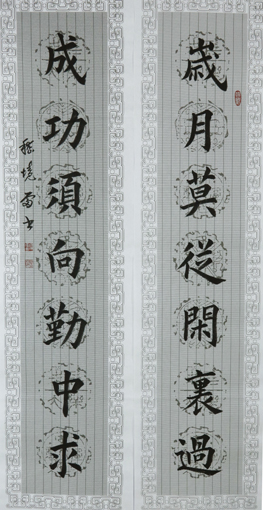 歲月莫從閑裏過
成功須向勤中求